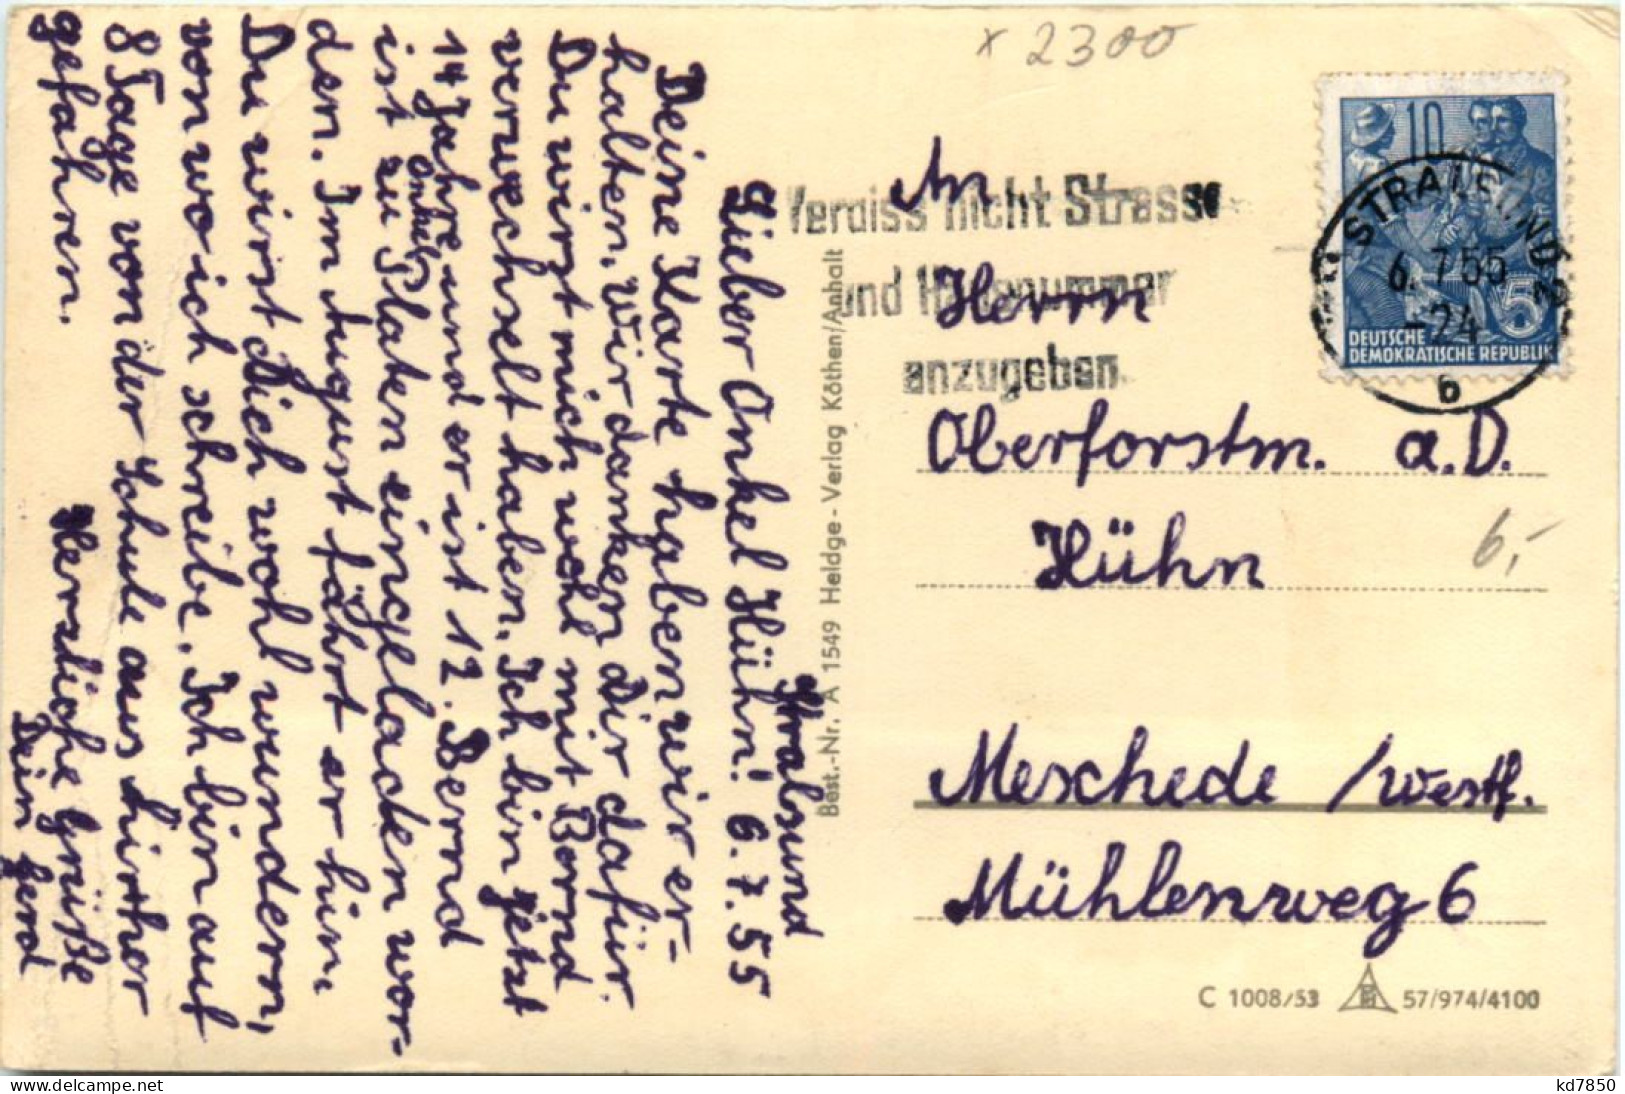 Stralsund
Lieber Onkel Hühn! 6.7.55
Deine Karte haben wir er-
halten. Wir danken Dir dafür.
Du wirst mich wohl mit Bernd
verwechselt haben. Ich bin jetzt
14 Jahre und er ist 12. Bernd
Onkels
ist zu Platen eingelacken wor-
den. Im August fährt er hin.
Du wirst Dich wohl wundern,
von wo ich schreibe. Ich bin auf
8 Tage von der Schule aus hirher
gefahren.
Herzliche Grüße
Dein Gerd
Best.-Nr. A 1549 Heldge-Verlag Köthen/Anhalt
x 2300
Vergiss nicht Strasse
und Hausnummer
anzugeben.
10
STRALSUND
6.7.55
-24
b
5
DEUTSCHE
DEMOKRATISCHE REPUBLIK
An
Herrn
Oberforstm. a.D.
Hühn
6,-
Meschede /Westf.
Mühlenweg 6
C 1008/53 57/974/4100
kd7850